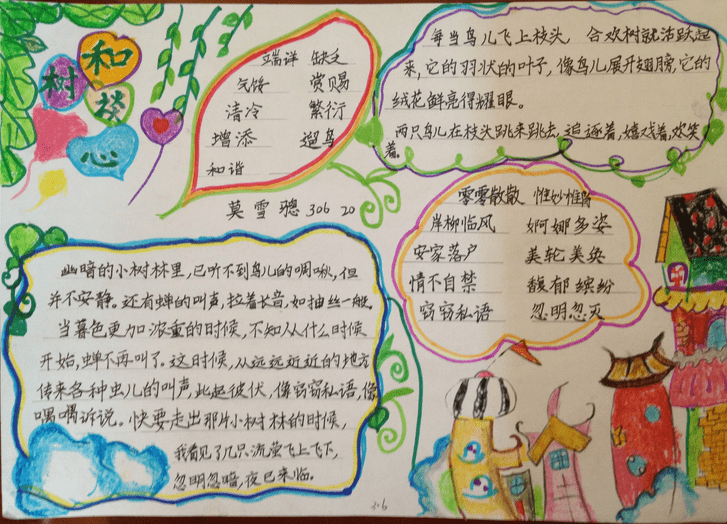 和
树 谈
心
端详 缺乏
气馁 赏赐
清冷 繁衍
增添 遛鸟
和谐
莫雪骢 306 20
每当鸟儿飞上枝头 合欢树就活跃起
来,它的羽状的叶子,像鸟儿展开翅膀,它的
绒花鲜亮得耀眼。
两只鸟儿在枝头跳来跳去,追逐着,嬉戏着,欢笑
着。
零零散散 惟妙惟肖
岸柳临风 婀娜多姿
安家落户 美轮美奂
情不自禁 馥郁缤纷
窃窃私语 忽明忽灭
幽暗的小树林里,已听不到鸟儿的啁啾,但
并不安静。还有蝉的叫声,拉着长音,如抽丝一般。
当暮色更加浓重的时候,不知从什么时候
开始,蝉不再叫了。这时候,从远远近近的地方
传来各种虫儿的叫声,此起彼伏,像窃窃私语,像
喁喁诉说。快要走出那片小树林的时候,
我看见了几只流萤飞上飞下,
忽明忽暗,夜已来临。
306